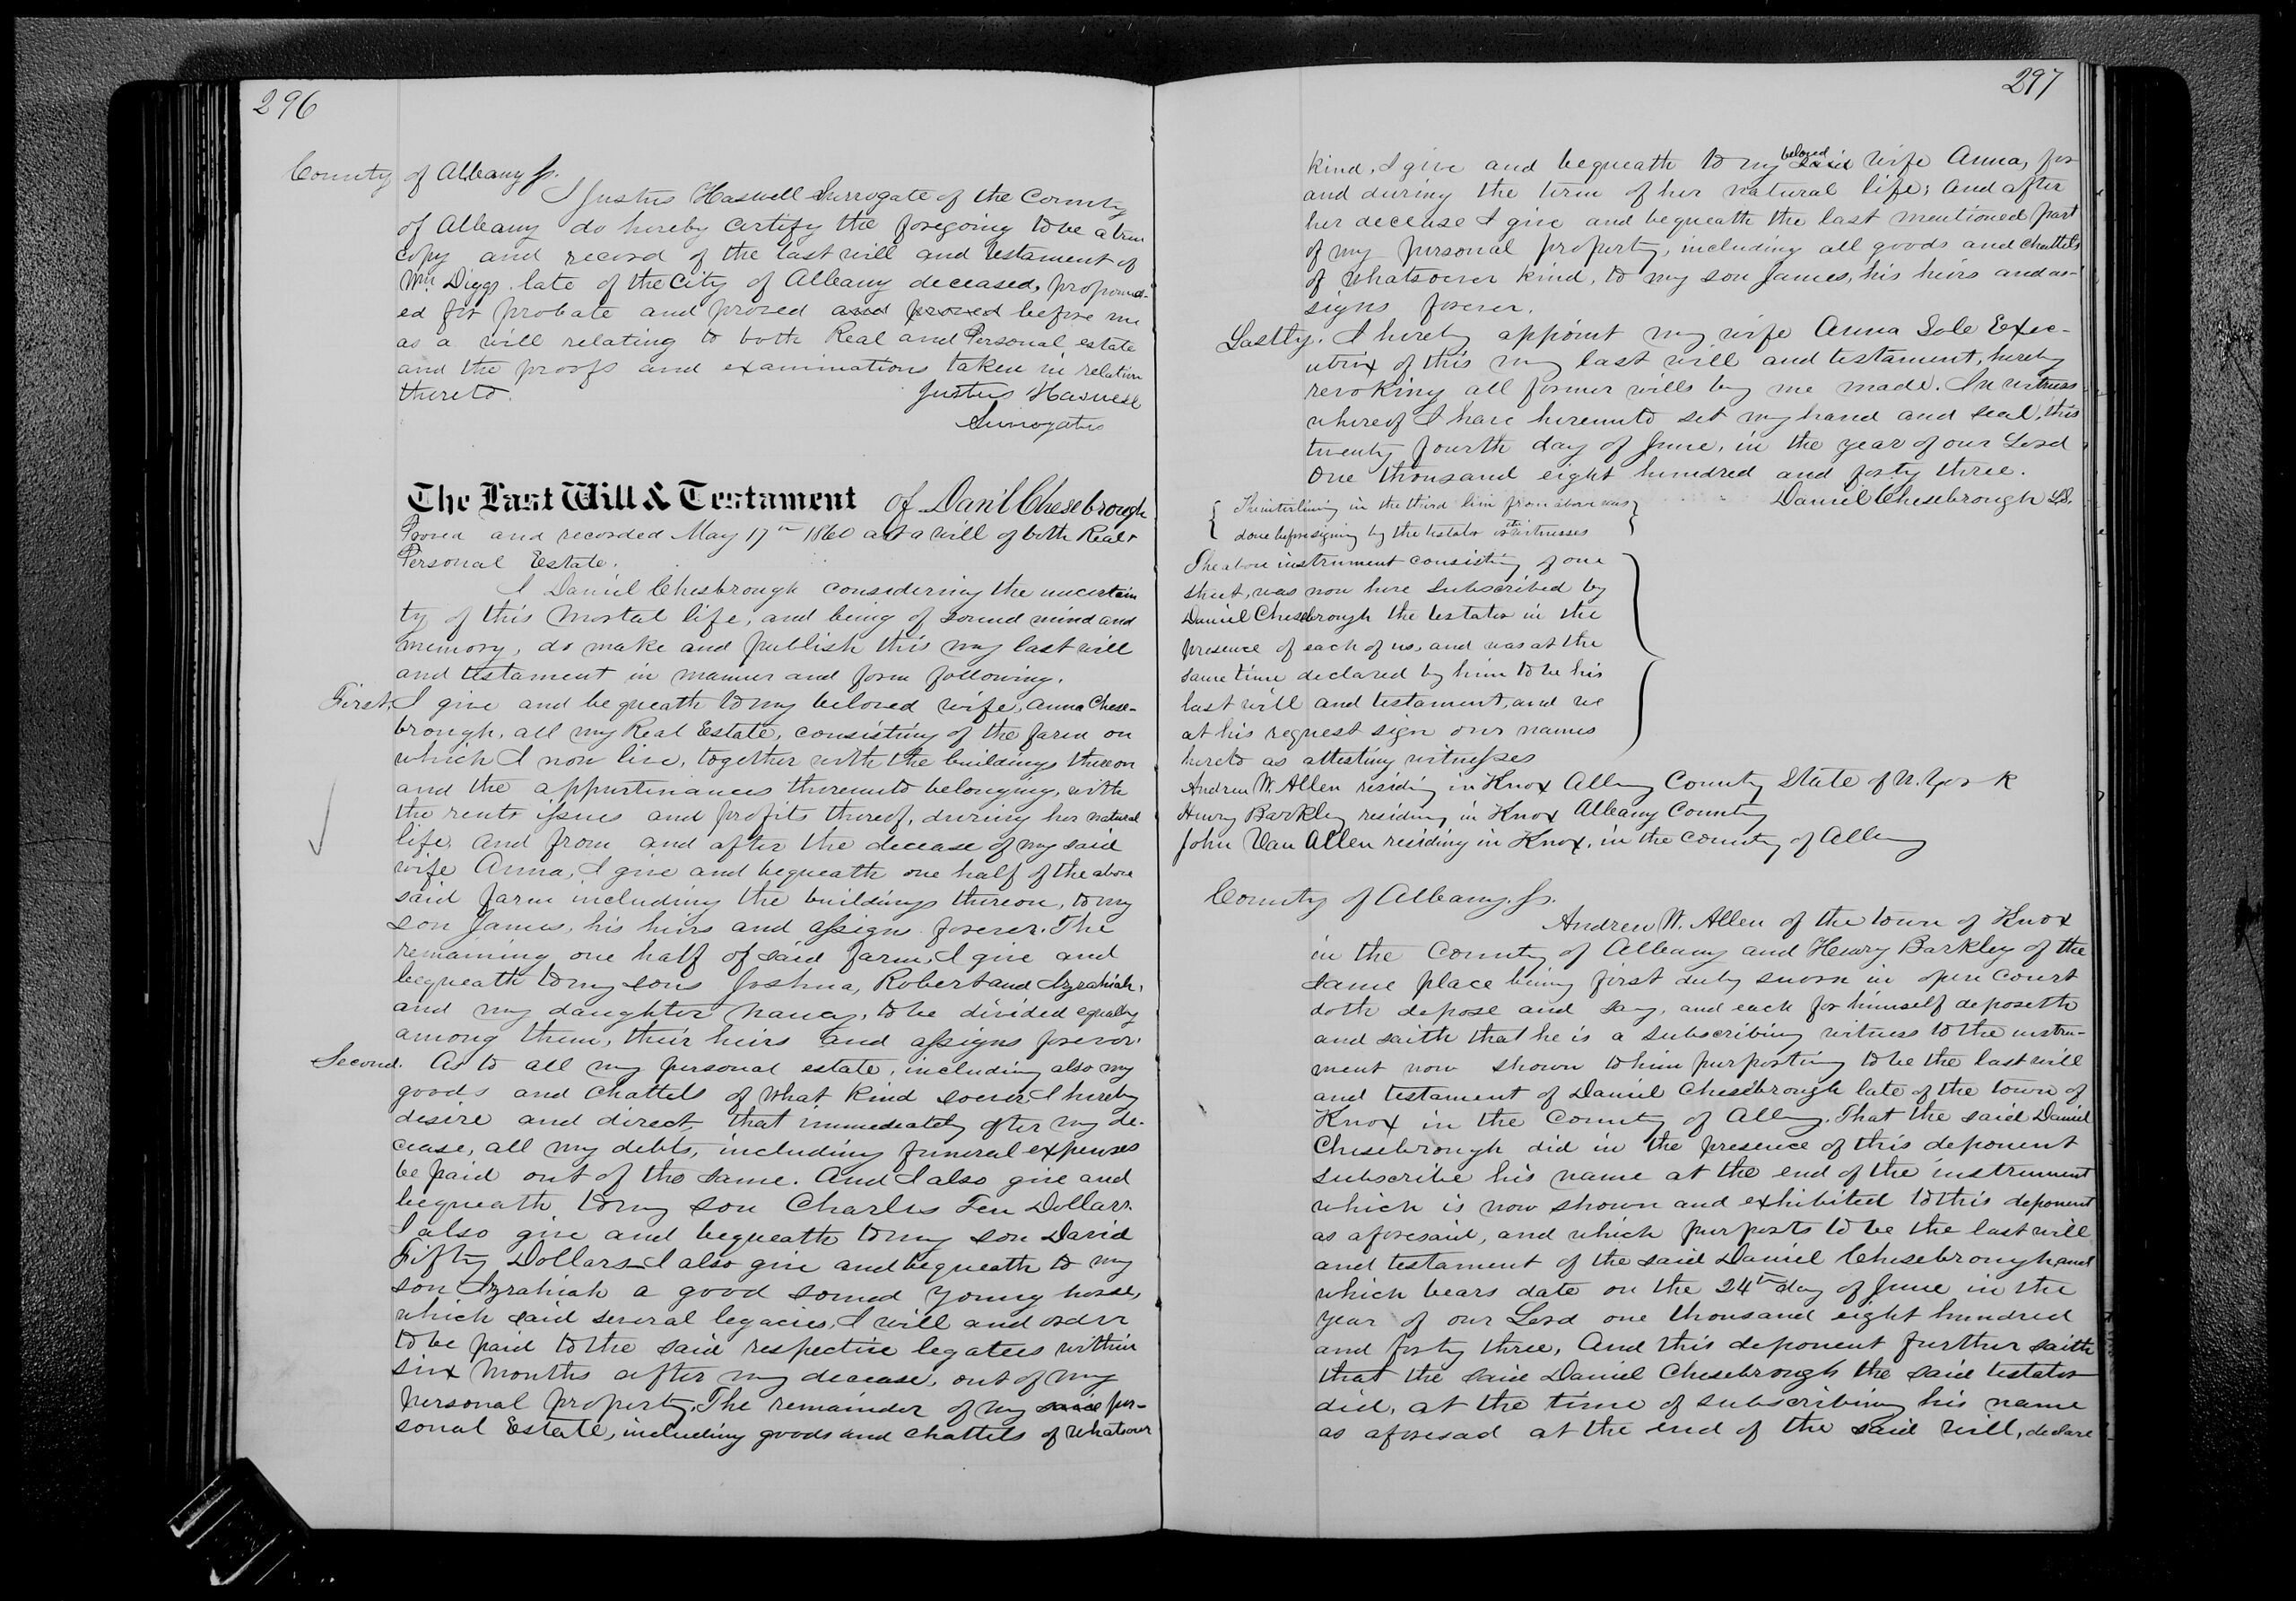 296
County of Albany ss.
I Justus Haswell Surrogate of the County
of Albany do hereby certify the foregoing to be a true
copy and record of the last will and testament of
Wm. Diggs late of the City of Albany deceased, propound-
ed for probate and proved and proved before me
as a will relating to both Real and Personal estate
and the proofs and examinations taken in relation
thereto.
Justus Haswell
Surrogate
The Last Will & Testament of Dan'l Chesebrough
Proved and recorded May 17th 1860 as a will of both Real &
Personal Estate.
I Daniel Chesbrough considering the uncertain
ty of this mortal life, and being of sound mind and
memory, do make and publish this my last will
and testament in manner and form following.
First. I give and bequeath to my beloved wife, Anna Chese-
brough, all my Real Estate, consisting of the farm on
which I now live, together with the buildings thereon
and the appurtinances thereunto belonging, with
the rents issues and profits thereof, during her natural
life, and from and after the decease of my said
wife Anna, I give and bequeath one half of the above
said farm including the buildings thereon, to my
son James, his heirs and assigns forever. The
remaining one half of said farm, I give and
bequeath to my sons Joshua, Robert and Azrahiah,
and my daughter Nancy, to be divided equally
among them, their heirs and assigns forever.
Second. As to all my personal estate, including also my
goods and chattels of what kind soever I hereby
desire and direct, that immediately after my de-
cease, all my debts, including funeral expenses
be paid out of the same. And I also give and
bequeath to my son Charles Ten Dollars.
I also give and bequeath to my son David
Fifty Dollars I also give and bequeath to my
son Azrahiah a good sound young horse,
which said several legacies, I will and order
to be paid to the said respective legatees within
six months after my decease, out of my
personal property. The remainder of my said per-
sonal Estate, including goods and chattels of whatsover
297
kind, I give and bequeath to my beloved said wife Anna, for
and during the term of her natural life; and after
her decease I give and bequeath the last mentioned part
of my personal property, including all goods and chattels
of whatsoever kind, to my son James, his heirs and as-
signs forever.
Lastly. I hereby appoint my wife Anna Sole Exec-
utrix of this my last will and testament, hereby
revoking all former wills by me made. In witness
whereof I have hereunto set my hand and seal, this
twenty fourth day of June, in the year of our Lord
one thousand eight hundred and forty three.
Daniel Chesebrough L.S.
The interlining in the third line from above was
done before signing by the testator or the witnesses
The above instrument consisting of one
sheet, was now here subscribed by
Daniel Chesebrough the testator in the
presence of each of us, and was at the
same time declared by him to be his
last will and testament, and we
at his request sign our names
hereto as attesting witnesses
Andrew W. Allen residing in Knox Albany County State of N. York
Henry Barkley residing in Knox Albany County
John Van Allen residing in Knox, in the county of Albany
County of Albany, ss.
Andrew W. Allen of the town of Knox
in the County of Albany and Henry Barkley of the
same place being first duly sworn in open court
doth depose and say, and each for himself deposeth
and saith that he is a subscribing witness to the instru-
ment now shown to him purporting to be the last will
and testament of Daniel Chesebrough late of the town of
Knox in the County of Albany. That the said Daniel
Chesebrough did in the presence of this deponent
subscribe his name at the end of the instrument
which is now shown and exhibited to this deponent
as aforesaid, and which purports to be the last will
and testament of the said Daniel Chesebrough and
which bears date on the 24th day of June in the
year of our Lord one thousand eight hundred
and forty three, And this deponent further saith
that the said Daniel Chesebrough the said testator
did, at the time of subscribing his name
as aforesad at the end of the said will, declare